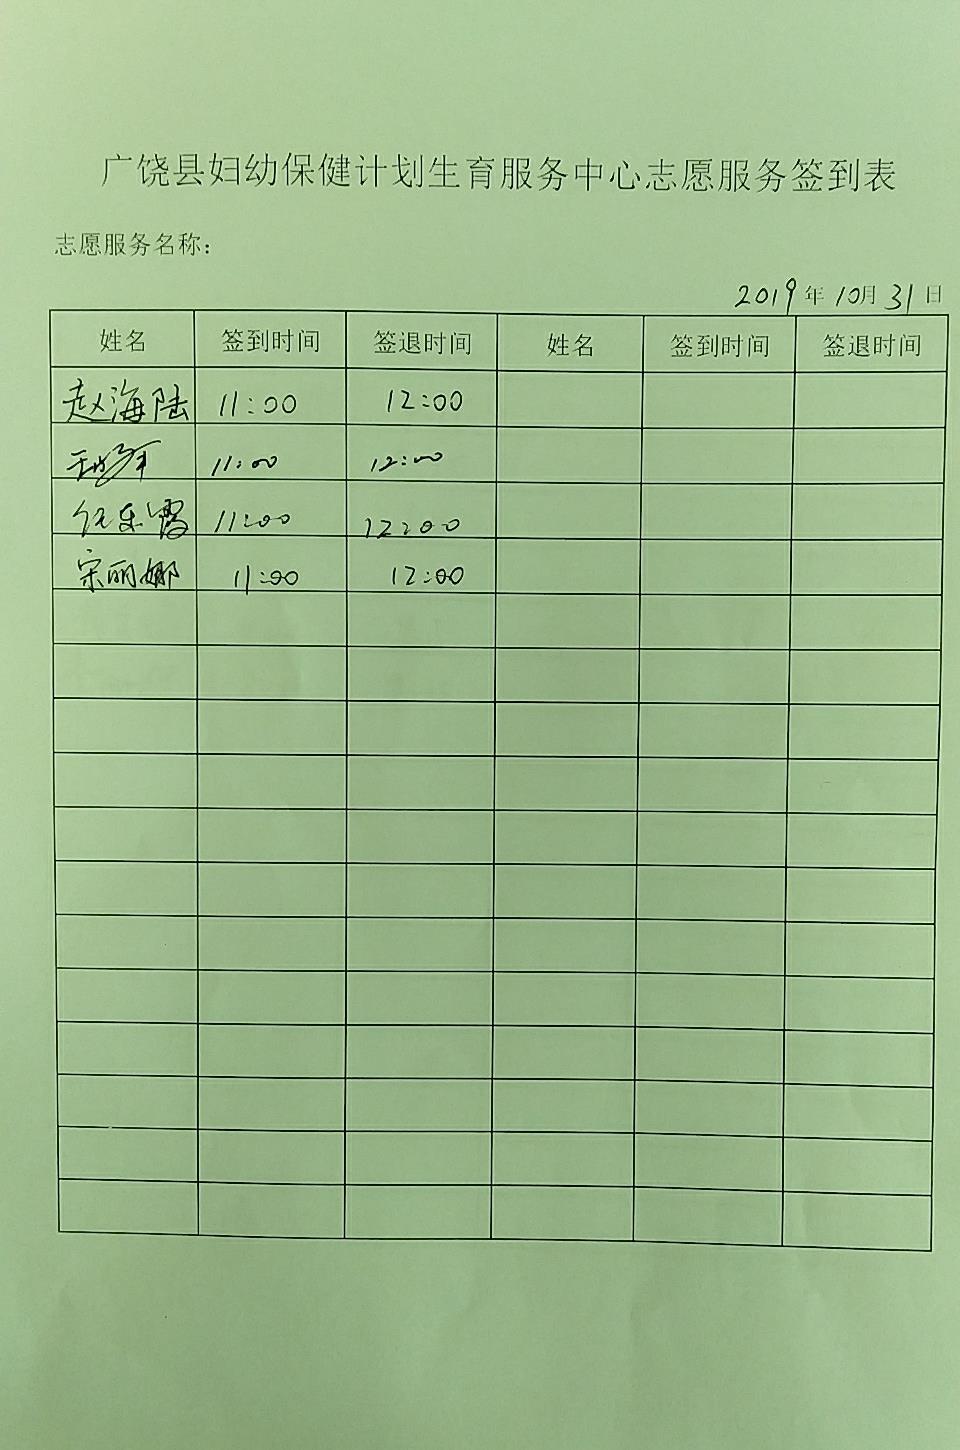 广饶县妇幼保健计划生育服务中心志愿服务签到表
志愿服务名称：
2019年10月31日
姓名 签到时间 签退时间 姓名 签到时间 签退时间
赵海陆 11:00 12:00
11:00 12:00
任东霞 11:00 12:00
宋丽娜 11:00 12:00